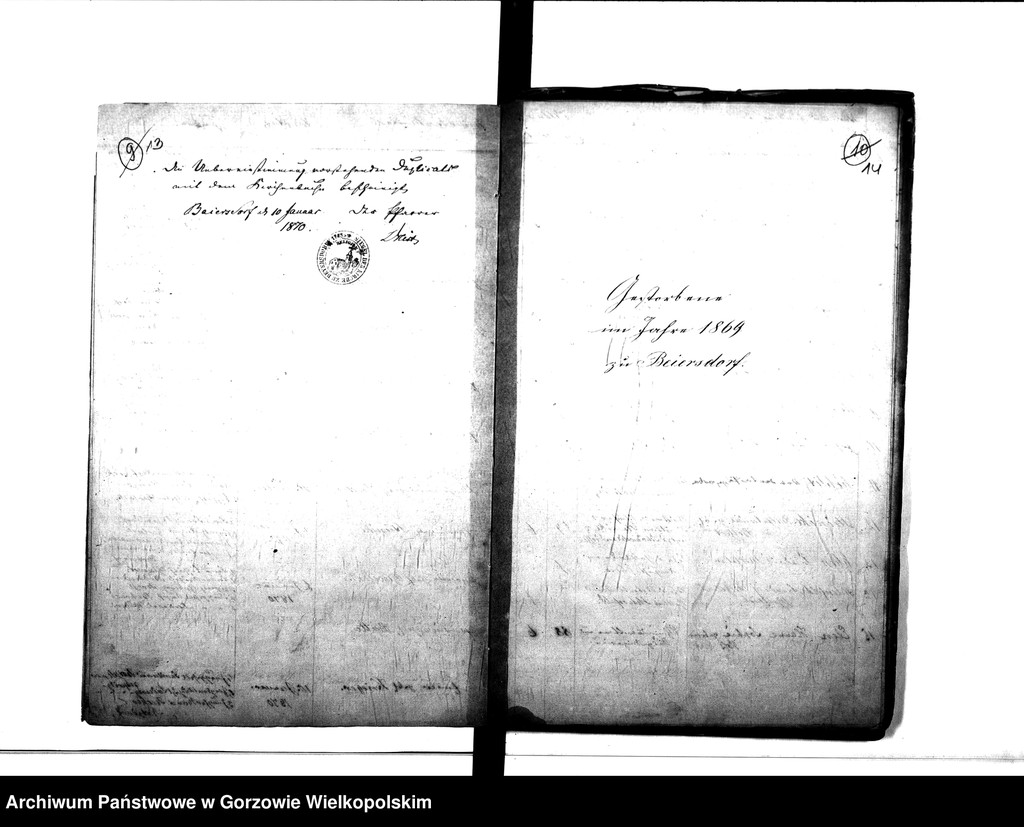 9 13
Die Uebereinstimmung vorstehenden Duplicats
mit dem Kirchenbuche bescheinigt
Beiersdorf d 10 Januar Der Pfarrer
1870.
10
14
Gestorbene
im Jahre 1869
zu Beiersdorf.
Archiwum Państwowe w Gorzowie Wielkopolskim